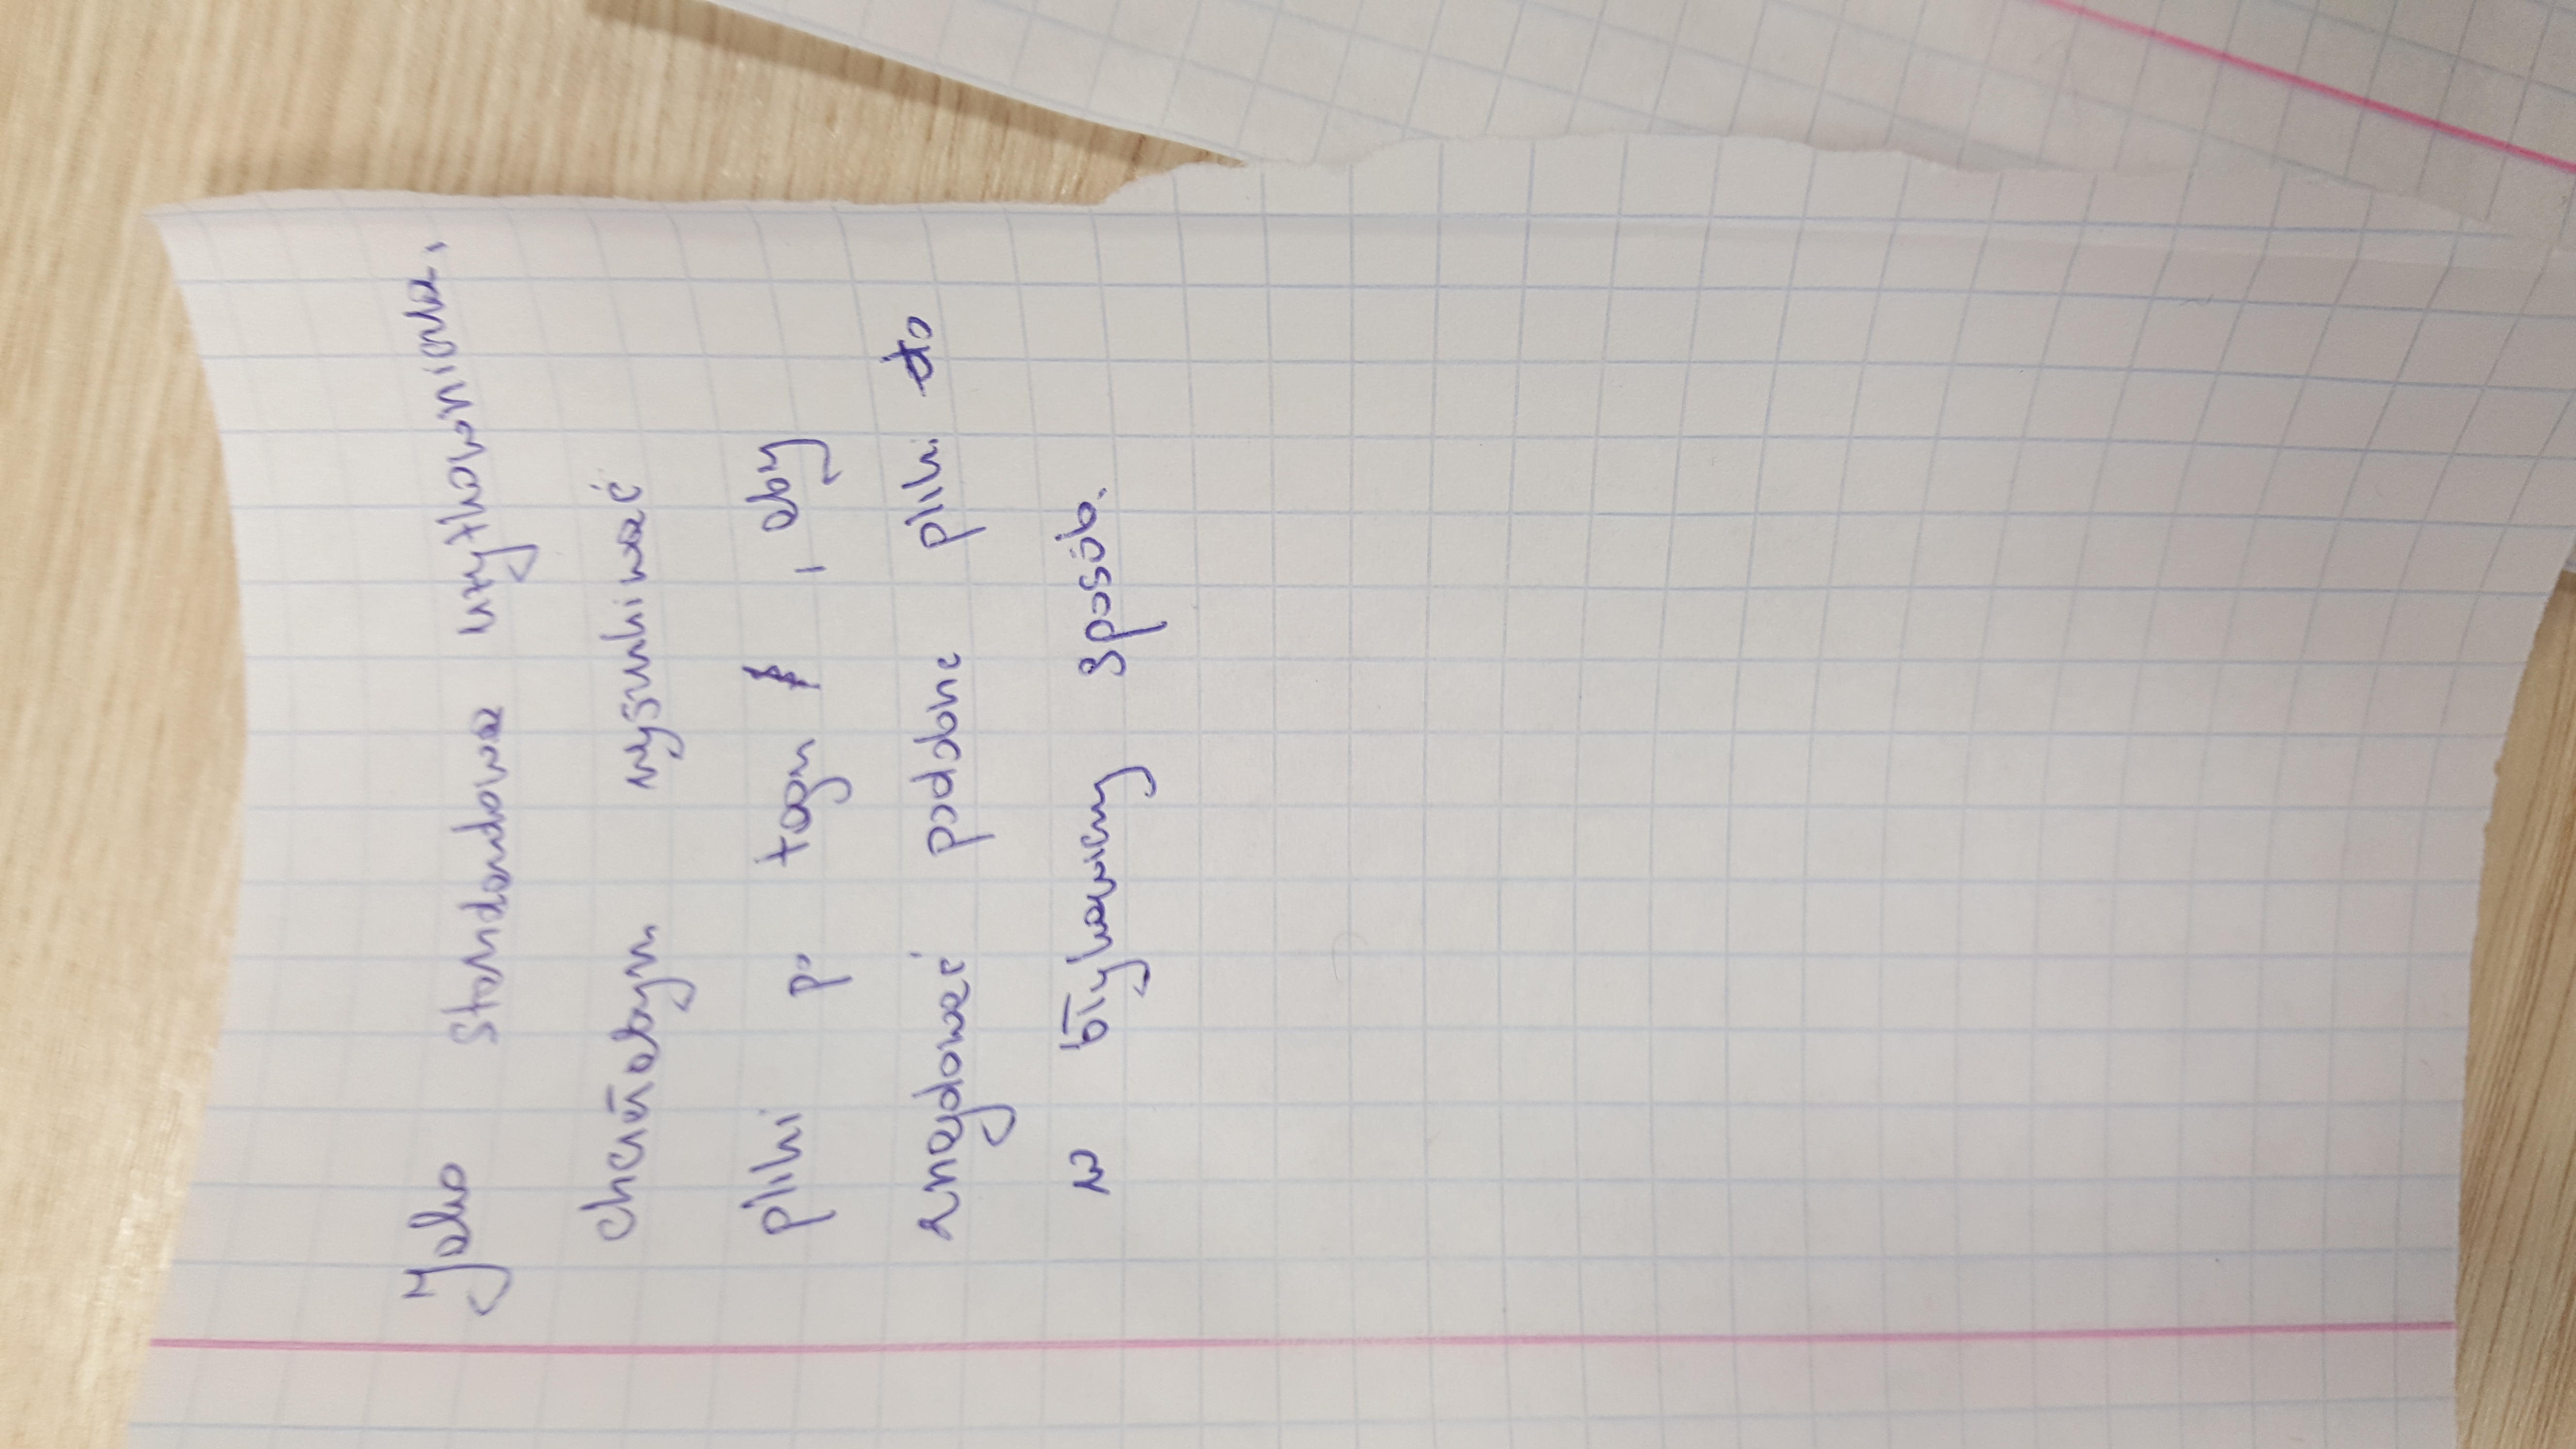 Jako standardowa użytkowniczka,
chciałabym wyszukiwać
pliki po tagu , aby
znajdować podobne pliki
w błyskawiczny sposób.